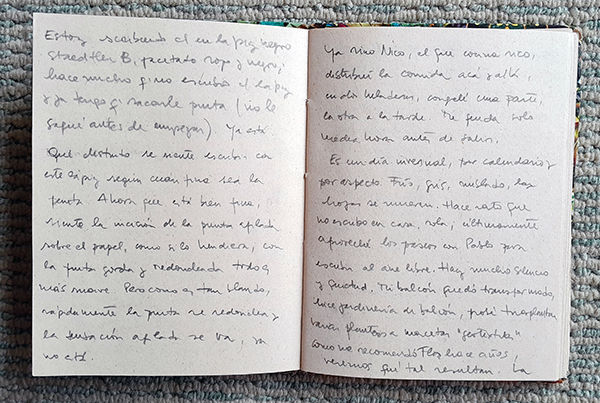 Estoy escribiendo c/ en lápiz negro
Staedtler B, facetado rojo y negro;
hace mucho q' no escribo c/ el lápiz
y ya tengo q' sacarle punta (no le
saqué antes de empezar). Ya está.
Qué distinto se siente escribir con
este lápiz según cuan fina sea la
punta. Ahora que está bien fina,
siento la incisión de la punta afilada
sobre el papel, como si lo hendiera; con
la punta gorda y redondeada todo es
más suave. Pero como es tan blando,
rápidamente la punta se redondea y
la sensación afilada se va, ya
no está.
Ya vino Nico, el que cocina rico,
distribuí la comida acá y allá,
en dos heladeras, congelé una parte,
la otra a la tarde. Me queda solo
media hora antes de salir.
Es un día invernal, por calendario y
por aspecto. Frío, gris, nublado, las
hojas se mueven. Hace rato que
no escribo en casa, sola; últimamente
aproveché los paseos con Pablo para
escribir al aire libre. Hay mucho silencio
y quietud. Mi balcón quedó transformado,
hice jardinería de balcón, pude trasplantar
varias plantas a macetas "geotextiles"
como me recomendó Flor hace años,
veremos qué tal resultan. La